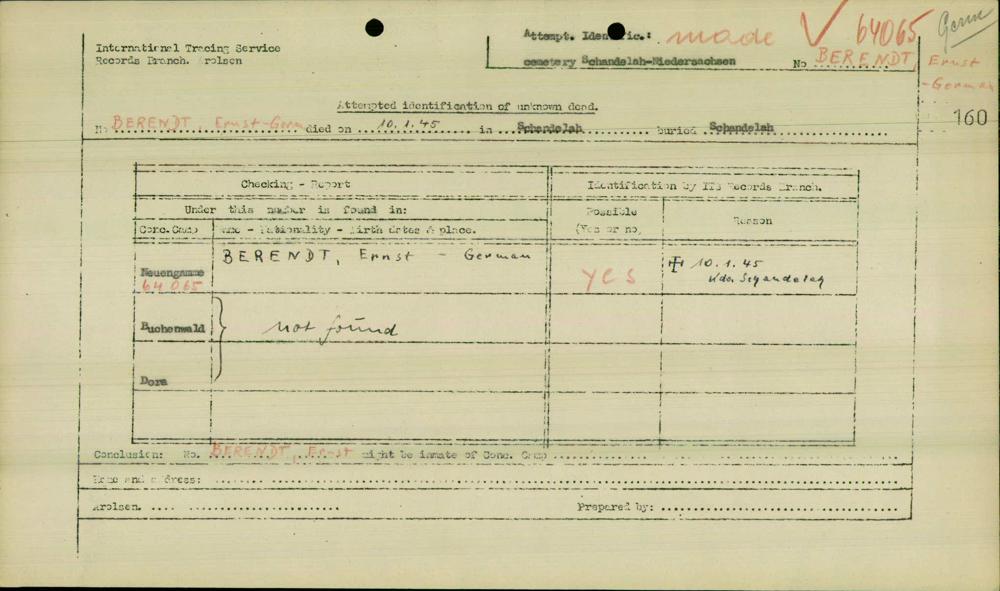 International Tracing Service
Records Branch. Arolsen
Attempt. Identific.: made ✓ 64065 Germ
cemetery Schandelah-Niedersachsen No BERENDT, Ernst
- German
Attempted identification of unknown dead.
160
No BERENDT, Ernst-Germ died on 10.1.45 in Schandelah buried Schandelah
Checking - Report Identification by ITS Records Branch.
Under this number is found in: Possible Reason
Conc.Camp Name - Nationality - Birth dates & place. (Yes or no)
BERENDT, Ernst - German
Neuengamme yes 10.1.45
64065 Kdo. Schandelah
Buchenwald not found
Dora
Conclusion: No. BERENDT, Ernst might be inmate of Conc. Camp
Name and address:
Arolsen. Prepared by: